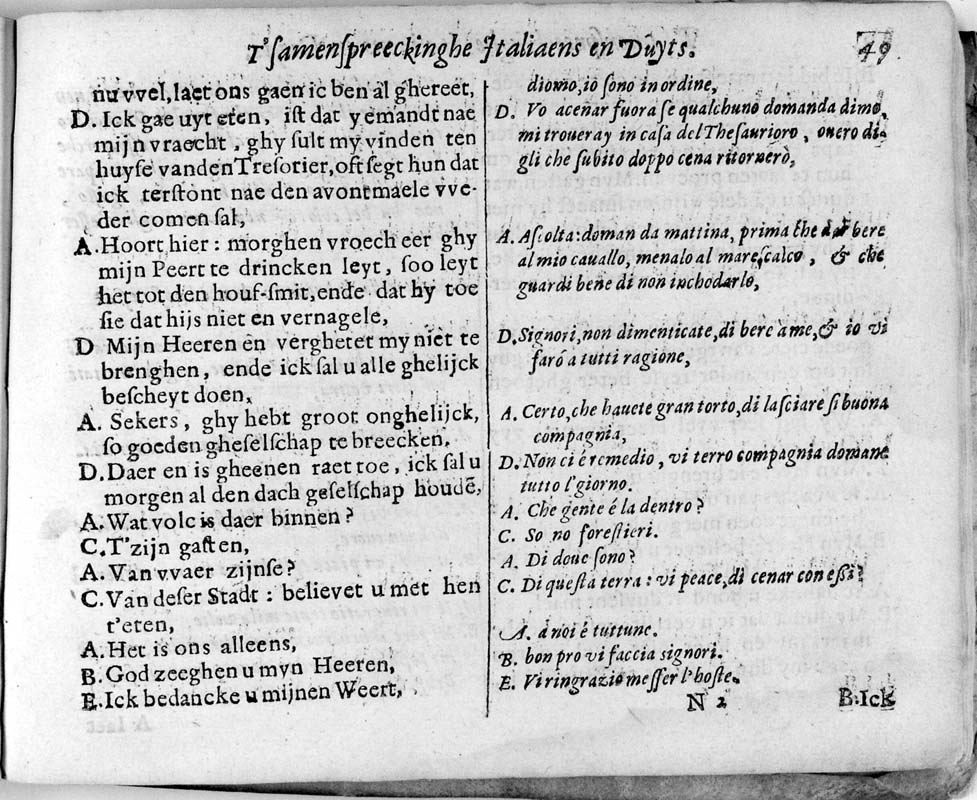 T'samenspreeckinghe Italiaens en Duyts.
49
nu vvel, laet ons gaen ic ben al ghereet,
D. Ick gae uyt eten, ist dat yemandt nae
mijn vraecht, ghy sult my vinden ten
huyse vanden Tresorier, oft segt hun dat
ick terstont nae den avontmaele vve-
der comen sal,
A. Hoort hier: morghen vroech eer ghy
mijn Peert te drincken leyt, soo leyt
het tot den houf-smit, ende dat hy toe
sie dat hijs niet en vernagele,
D Mijn Heeren en verghetet my niet te
brenghen, ende ick sal u alle ghelijck
bescheyt doen,
A. Sekers, ghy hebt groot onghelijck,
so goeden gheselschap te breecken,
D. Daer en is gheenen raet toe, ick sal u
morgen al den dach geselschap houdē,
A. Wat volc is daer binnen?
C. T'zijn gasten,
A. Van vvaer zijnse?
C. Van deser Stadt: believet u met hen
t'eten,
A. Het is ons alleens,
B. God zeeghen u myn Heeren,
E. Ick bedancke u mijnen Weert,
diomo, io sono in ordine,
D. Vo acenar fuora se qualchuno domanda dimo,
mi troueray in casa del Thesaurioro, ouero di
gli che subito doppo cena ritornerò,
A. Ascolta: doman da mattina, prima che dar bere
al mio cauallo, menalo al marescalco, & che
guardi bene di non inchodarlo,
D. Signori, non dimenticate, di bere a me, & io vi
faró a tutti ragione,
A. Certo, che hauete gran torto, di lasciare si buona
compagnia,
D. Non ci é remedio, vi terro compagnia domane
tutto l'giorno.
A. Che gente é la dentro?
C. So no forestieri.
A. Di doue sono?
C. Di questa terra: vi peace, di cenar con essi?
A. a noi é tuttuno.
B. bon pro vi faccia signori.
E. Vi ringrazio messer l'hoste.
N 2
B. Ick